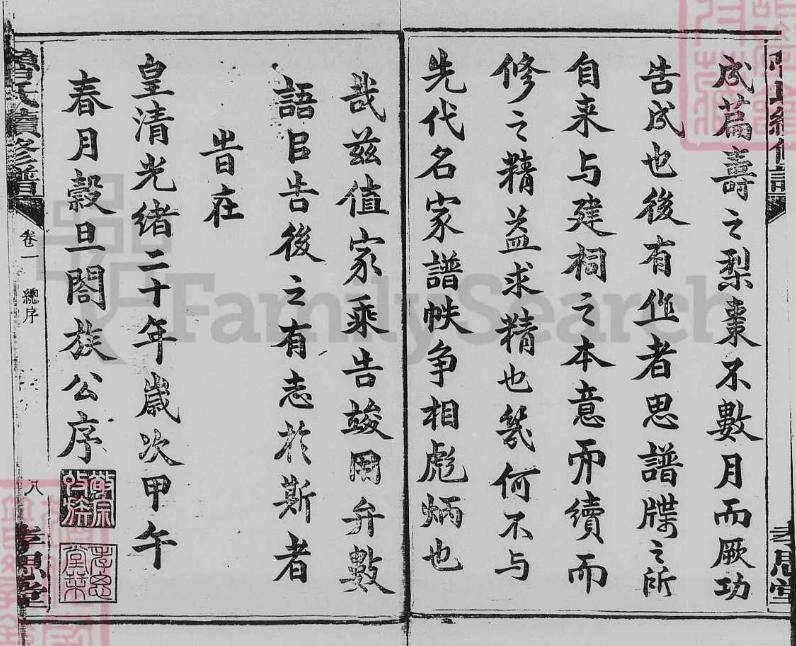 成萹壽之梨棗不數月而厥功
告成也後有作者思譜牒之所
自来与建祠之本意而續而
修之精益求精也㡬何不与
先代名家譜帙争相彪炳也
哉兹值家乘告竣用弁數
語㠯告後之有志於斯者
旹在
皇清光緒二十年嵗次甲午
春月穀旦閤族公序
氏續修譜
卷一
總序
八
孝思堂
孝思堂
FamilySearch